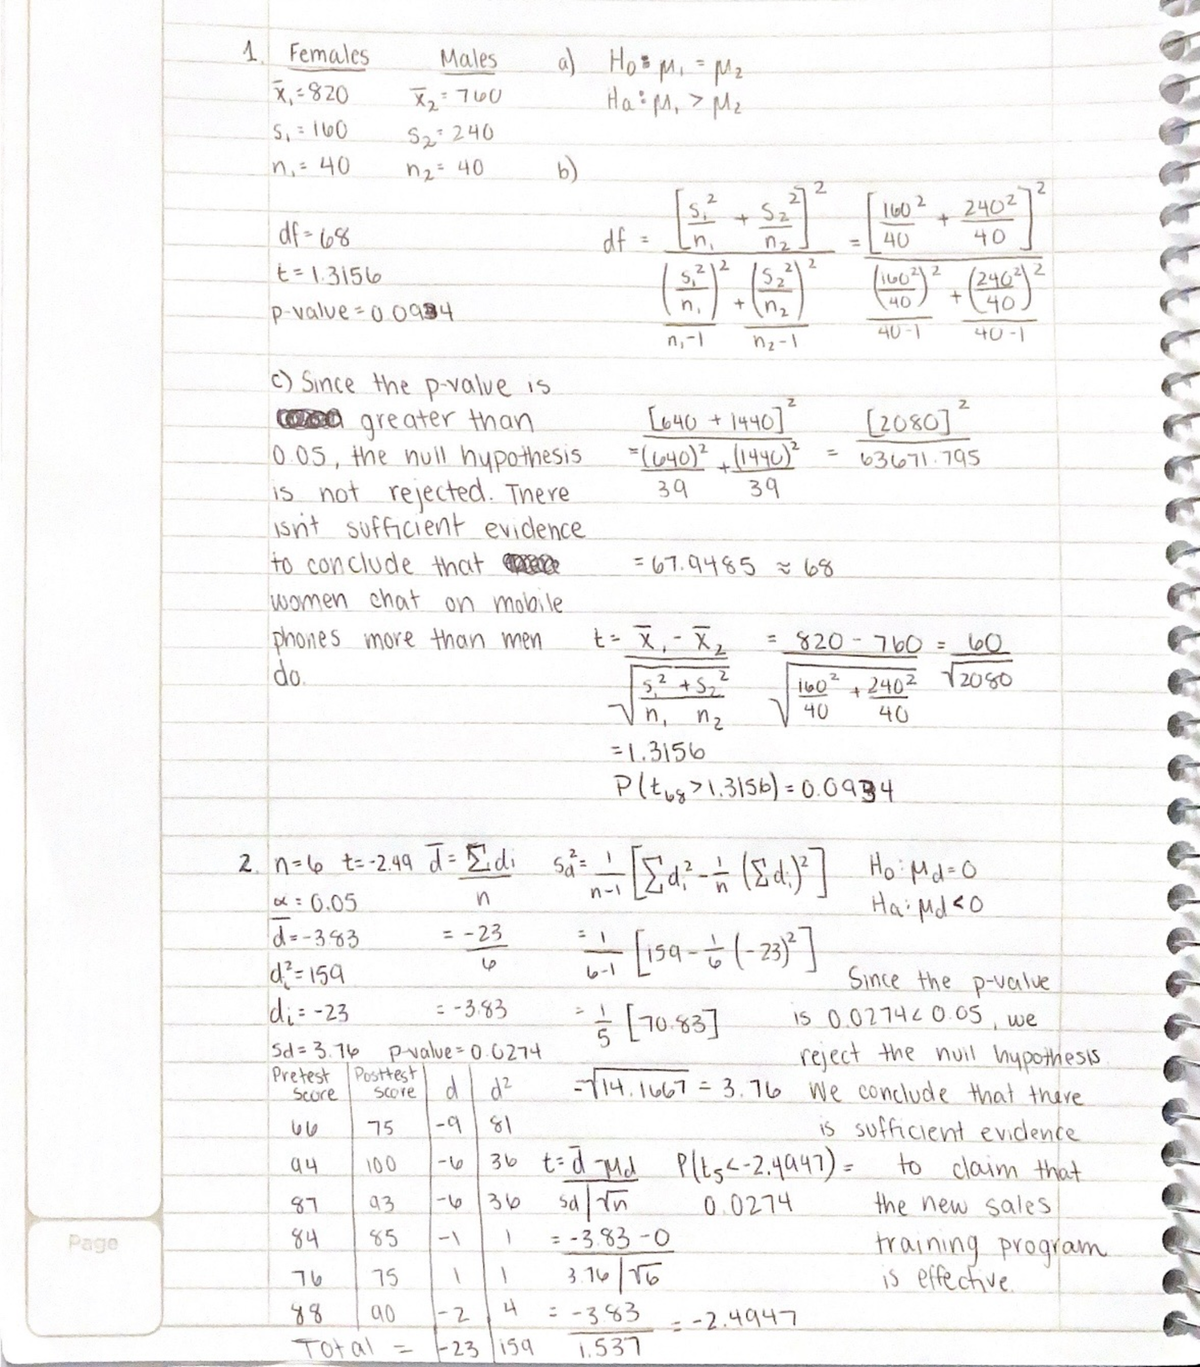 1. Females Males a) Ho: μ₁ = μ₂
x̄₁ = 820 x̄₂ = 760 Ha: μ₁ > μ₂
s₁ = 160 s₂ = 240
n₁ = 40 n₂ = 40 b)
df = [s₁²/n₁ + s₂²/n₂]² / ((s₁²/n₁)²/n₁-1 + (s₂²/n₂)²/n₂-1) = [160²/40 + 240²/40]² / ((160²/40)²/40-1 + (240²/40)²/40-1)
df = 68
t = 1.3156
p-value = 0.0934
c) Since the p-value is
greater than
0.05, the null hypothesis
is not rejected. There
isn't sufficient evidence
to conclude that
women chat on mobile
phones more than men
do.
= [640 + 1440]² / ((640)²/39 + (1440)²/39) = [2080]² / 63671.795
= 67.9485 ≈ 68
t = x̄₁ - x̄₂ / √(s₁²/n₁ + s₂²/n₂) = 820 - 760 / √(160²/40 + 240²/40) = 60 / √2080
= 1.3156
P(t₆₈ > 1.3156) = 0.0934
2. n = 6 t = -2.49 d̄ = Σdi / n sd² = 1/n-1 [Σdi² - 1/n (Σdi)²] Ho: μd = 0
α = 0.05 Ha: μd < 0
d̄ = -3.83 = -23/6 = 1/6-1 [159 - 1/6 (-23)²]
di² = 159
di = -23 = -3.83 = 1/5 [70.83]
sd = 3.76 p-value = 0.0274
= √14.1667 = 3.76
Since the p-value
is 0.0274 < 0.05, we
reject the null hypothesis.
We conclude that there
is sufficient evidence
to claim that
the new sales
training program
is effective.
Pretest Score Posttest score d d²
66 75 -9 81
94 100 -6 36
87 93 -6 36
84 85 -1 1
76 75 1 1
88 90 -2 4
Total = -23 159
t = d̄ - μd / sd/√n P(t₅ < -2.4947) =
0.0274
= -3.83 - 0 / 3.76/√6
= -3.83 / 1.537 = -2.4947
Page